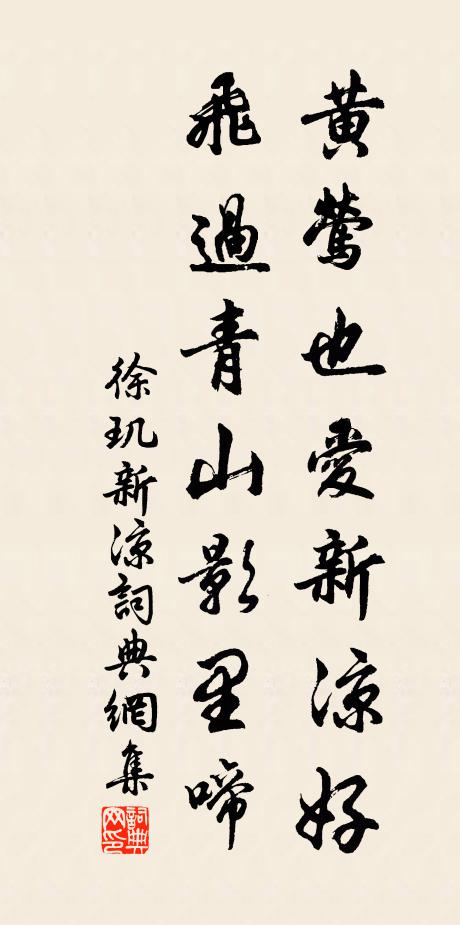 黄鶯也愛新涼好
飛過青山影里啼
徐玑新涼詞典網集
詞典
网印